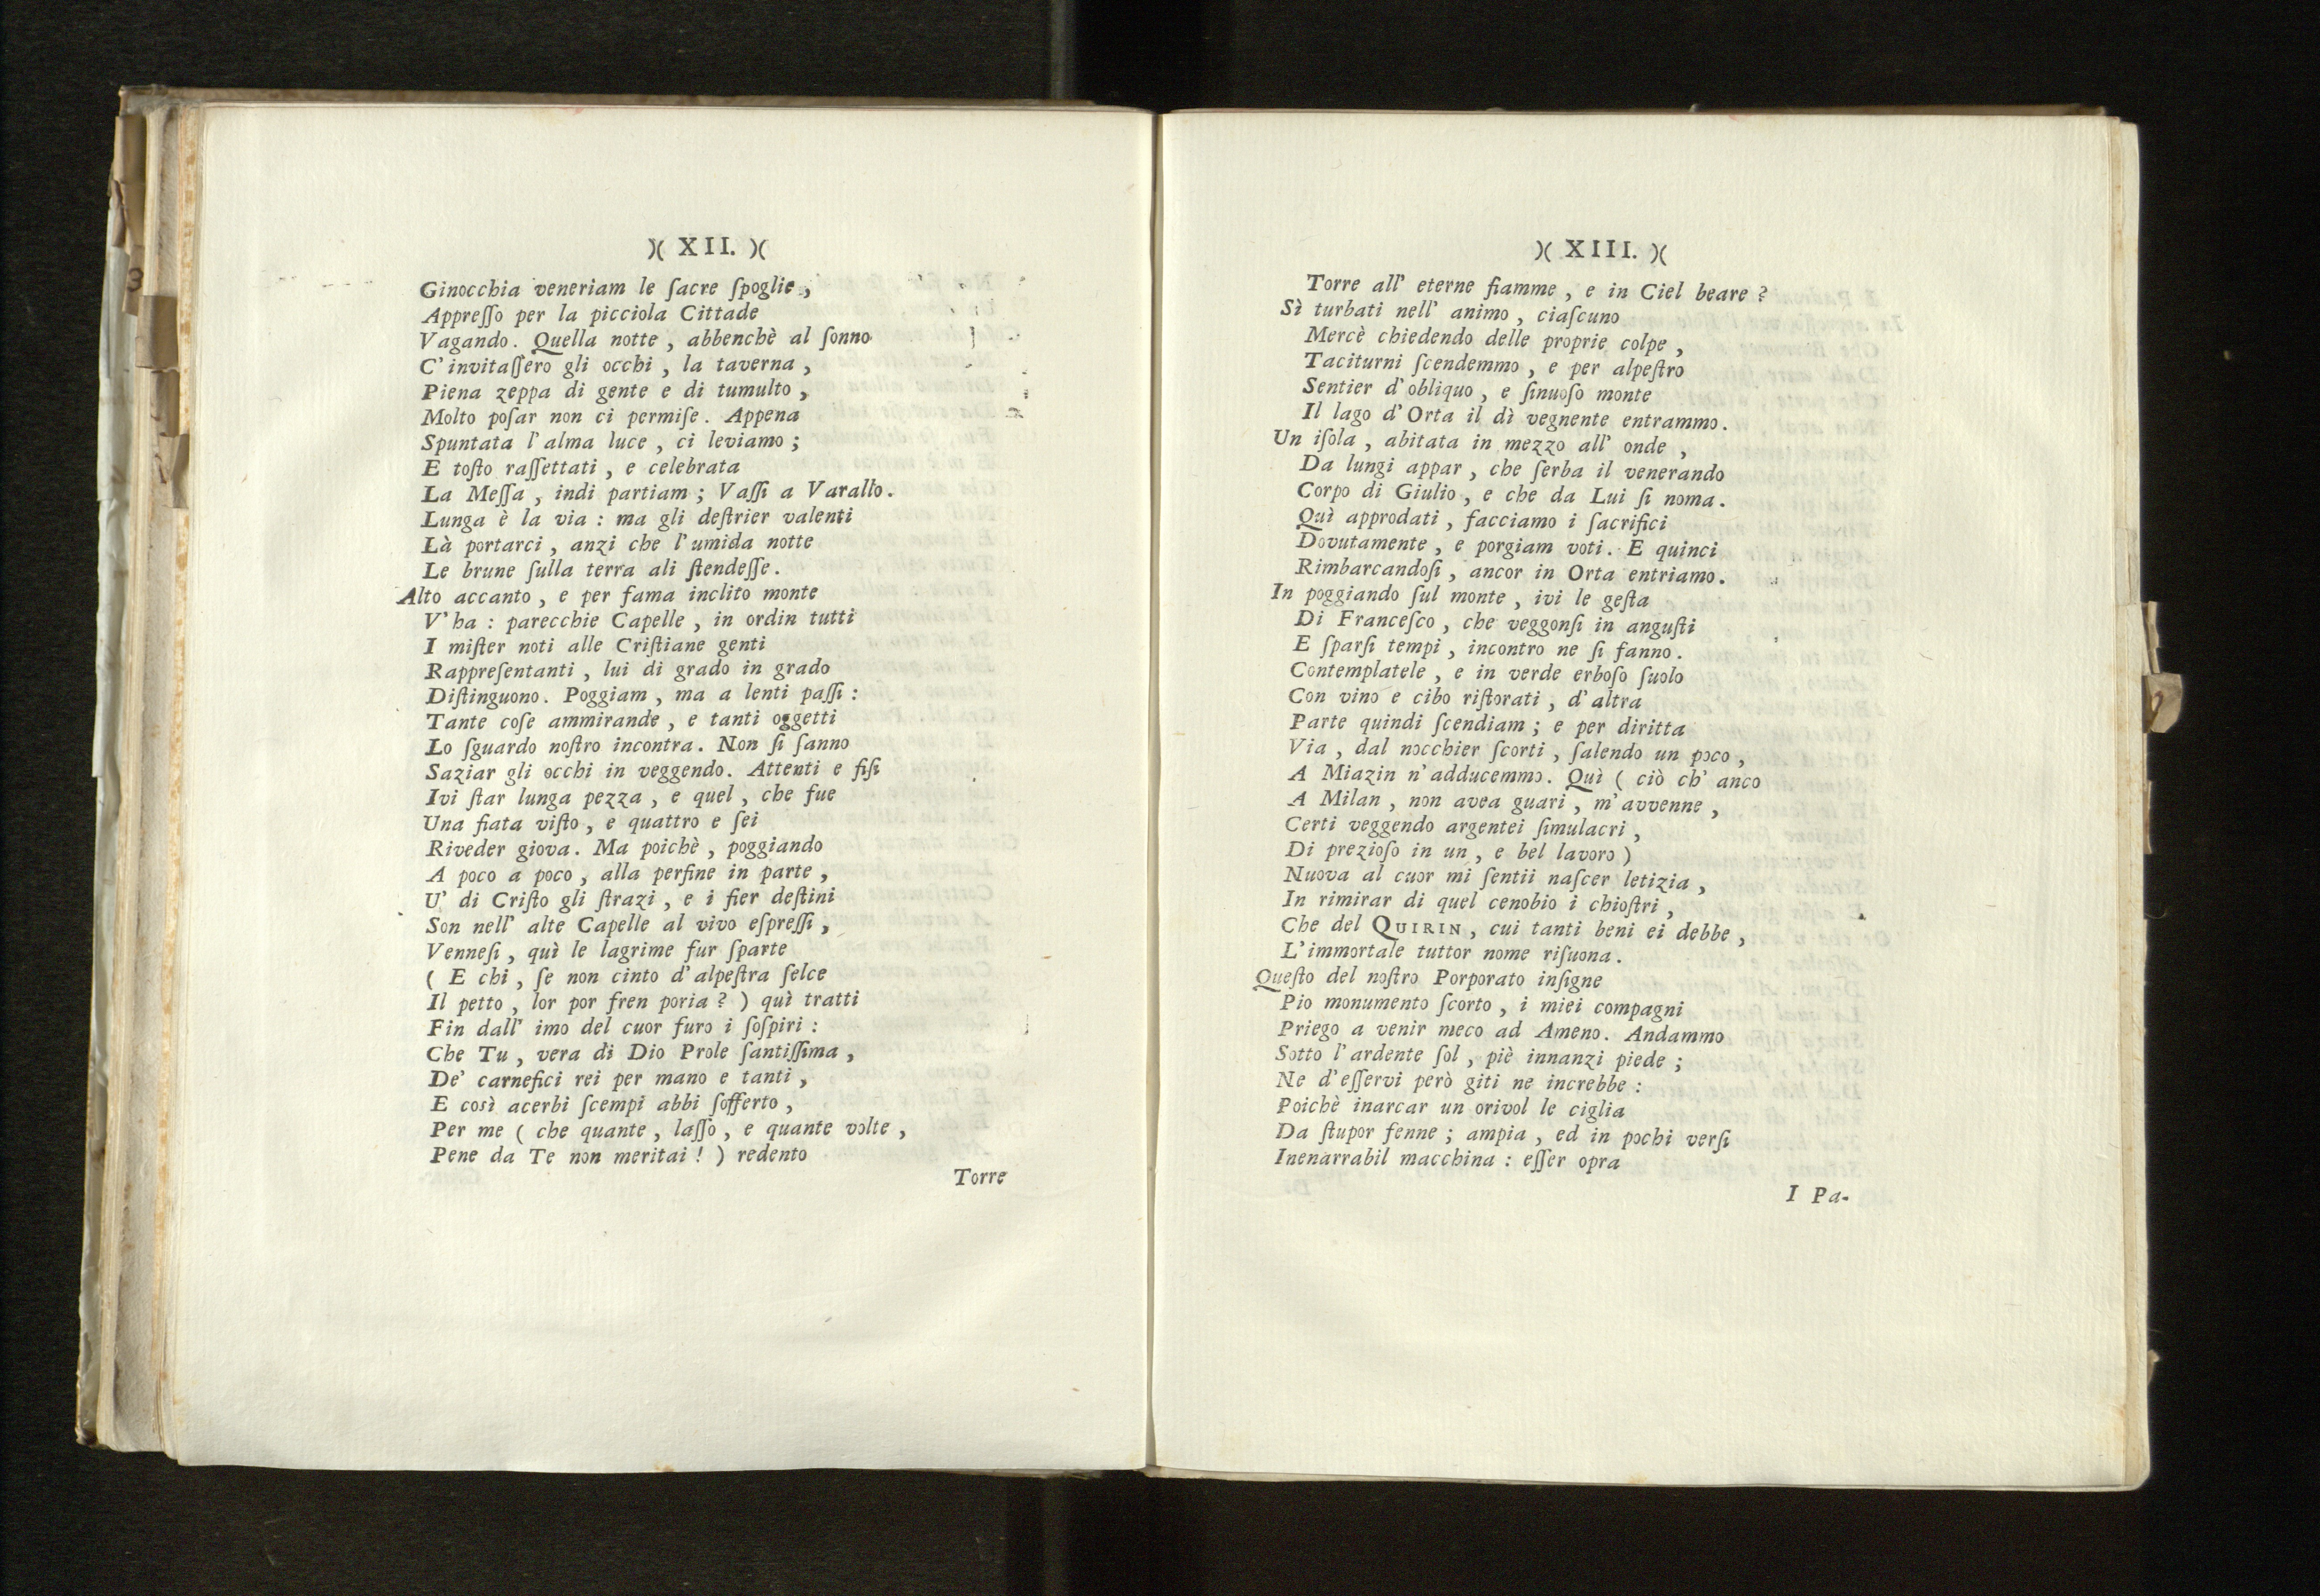 )( XII. )(
Ginocchia veneriam le ſacre ſpoglie,
Appreſſo per la picciola Cittade
Vagando. Quella notte, abbenchè al ſonno
C'invitaſſero gli occhi, la taverna,
Piena zeppa di gente e di tumulto,
Molto poſar non ci permiſe. Appena
Spuntata l'alma luce, ci leviamo;
E toſto raſſettati, e celebrata
La Meſſa, indi partiam; Vaſſi a Varallo.
Lunga è la via: ma gli deſtrier valenti
Là portarci, anzi che l'umida notte
Le brune ſulla terra ali ſtendeſſe.
Alto accanto, e per fama inclito monte
V'ha: parecchie Capelle, in ordin tutti
I miſter noti alle Criſtiane genti
Rappreſentanti, lui di grado in grado
Diſtinguono. Poggiam, ma a lenti paſſi:
Tante coſe ammirande, e tanti oggetti
Lo ſguardo noſtro incontra. Non ſi ſanno
Saziar gli occhi in veggendo. Attenti e fiſi
Ivi ſtar lunga pezza, e quel, che fue
Una fiata viſto, e quattro e ſei
Riveder giova. Ma poichè, poggiando
A poco a poco, alla perfine in parte,
U' di Criſto gli ſtrazi, e i fier deſtini
Son nell' alte Capelle al vivo eſpreſſi,
Venneſi, quì le lagrime fur ſparte
( E chi, ſe non cinto d'alpeſtra ſelce
Il petto, lor por fren poria? ) quì tratti
Fin dall' imo del cuor furo i ſoſpiri:
Che Tu, vera di Dio Prole ſantiſſima,
De' carnefici rei per mano e tanti,
E così acerbi ſcempi abbi ſofferto,
Per me ( che quante, laſſo, e quante volte,
Pene da Te non meritai! ) redento
Torre
)( XIII. )(
Torre all' eterne fiamme, e in Ciel beare?
Sì turbati nell' animo, ciaſcuno
Mercè chiedendo delle proprie colpe,
Taciturni ſcendemmo, e per alpeſtro
Sentier d'obliquo, e ſinuoſo monte
Il lago d'Orta il dì vegnente entrammo.
Un iſola, abitata in mezzo all' onde,
Da lungi appar, che ſerba il venerando
Corpo di Giulio, e che da Lui ſi noma.
Quì approdati, facciamo i ſacrifici
Dovutamente, e porgiam voti. E quinci
Rimbarcandoſi, ancor in Orta entriamo.
In poggiando ſul monte, ivi le geſta
Di Franceſco, che veggonſi in anguſti
E ſparſi tempi, incontro ne ſi fanno.
Contemplatele, e in verde erboſo ſuolo
Con vino e cibo riſtorati, d'altra
Parte quindi ſcendiam; e per diritta
Via, dal nocchier ſcorti, ſalendo un poco,
A Miazin n'adducemmo. Quì ( ciò ch' anco
A Milan, non avea guari, m'avvenne,
Certi veggendo argentei ſimulacri,
Di prezioſo in un, e bel lavoro)
Nuova al cuor mi ſentii naſcer letizia,
In rimirar di quel cenobio i chioſtri,
Che del QUIRIN, cui tanti beni ei debbe,
L'immortale tuttor nome riſuona.
Queſto del noſtro Porporato inſigne
Pio monumento ſcorto, i miei compagni
Priego a venir meco ad Ameno. Andammo
Sotto l'ardente ſol, piè innanzi piede;
Ne d'eſſervi però giti ne increbbe:
Poichè inarcar un orivol le ciglia
Da ſtupor fenne; ampia, ed in pochi verſi
Inenarrabil macchina: eſſer opra
I Pa-